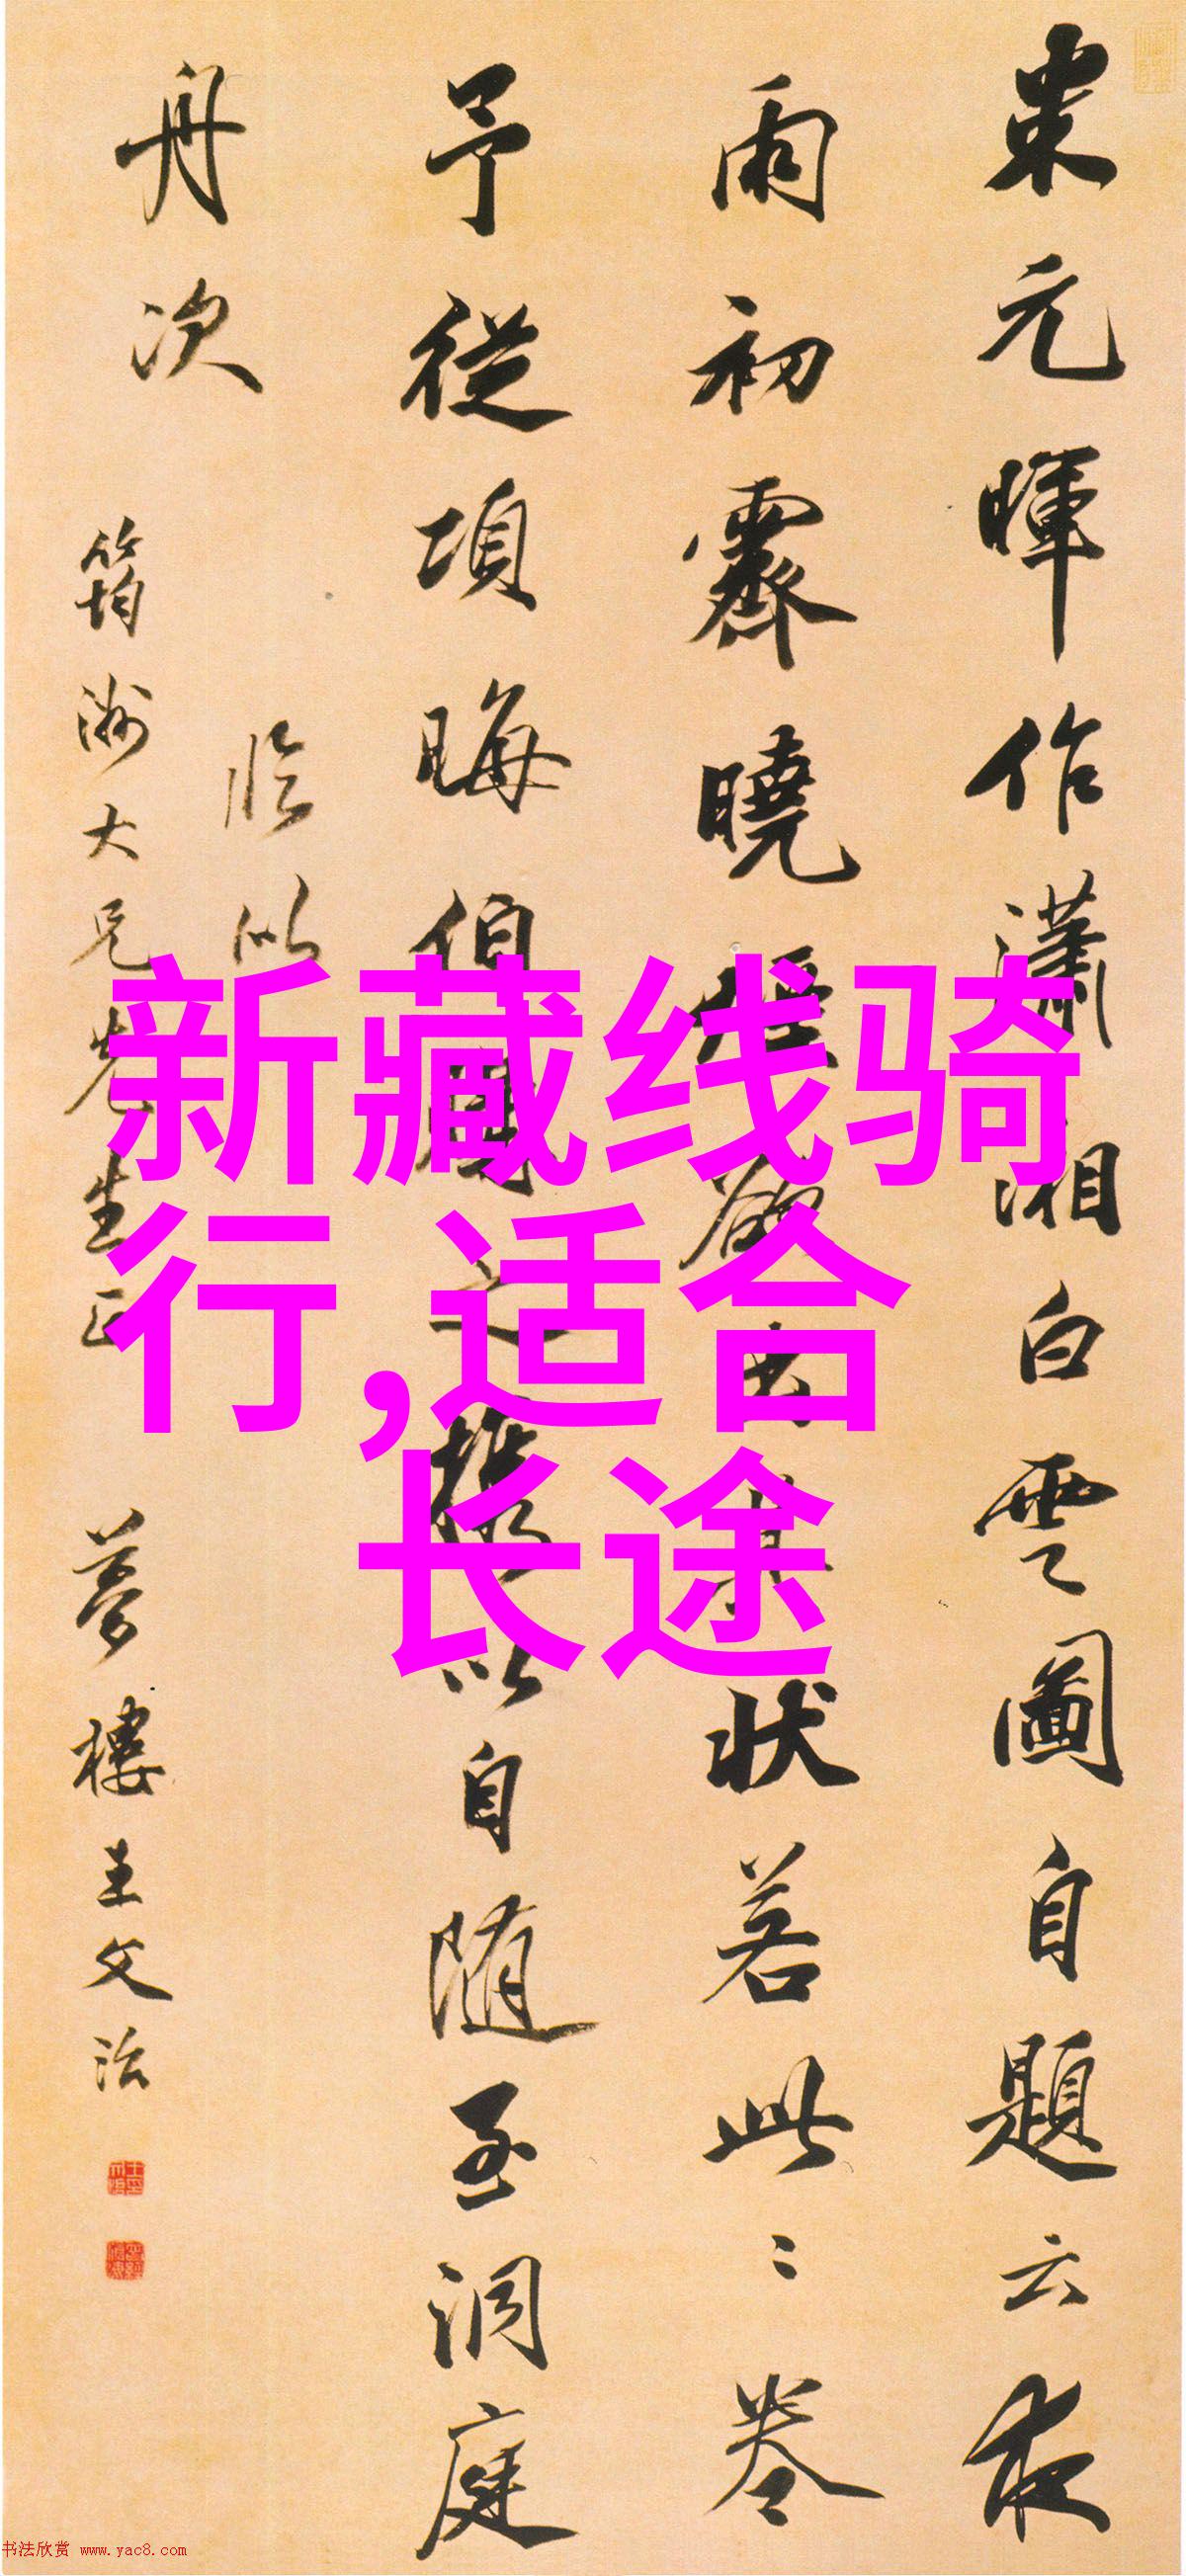 米元暉作瀟湘白雲圖自題云夜
雨初霽曉煙欲其狀若此〻卷
予從項晦伯之攜以自隨至洞庭
舟次
臨以
筠洲大兄先生正 夢樓王文治
新藏线骑
行,适合
长途
书法欣赏 www.yac8.com